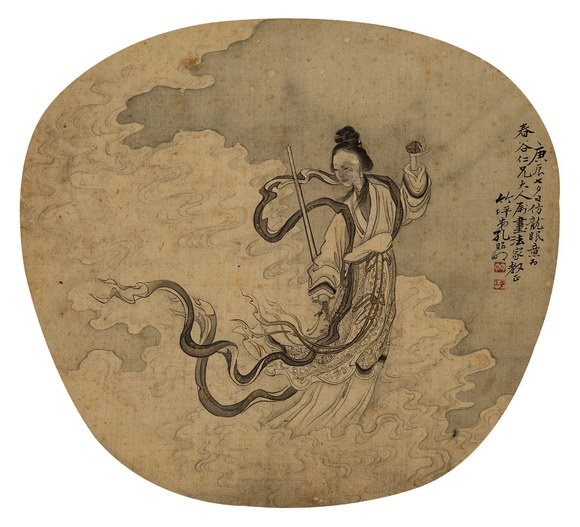 庚辰七夕日仿龍眠意為
春谷仁兄大人属畫法家教正
竹坪弟孔昭明